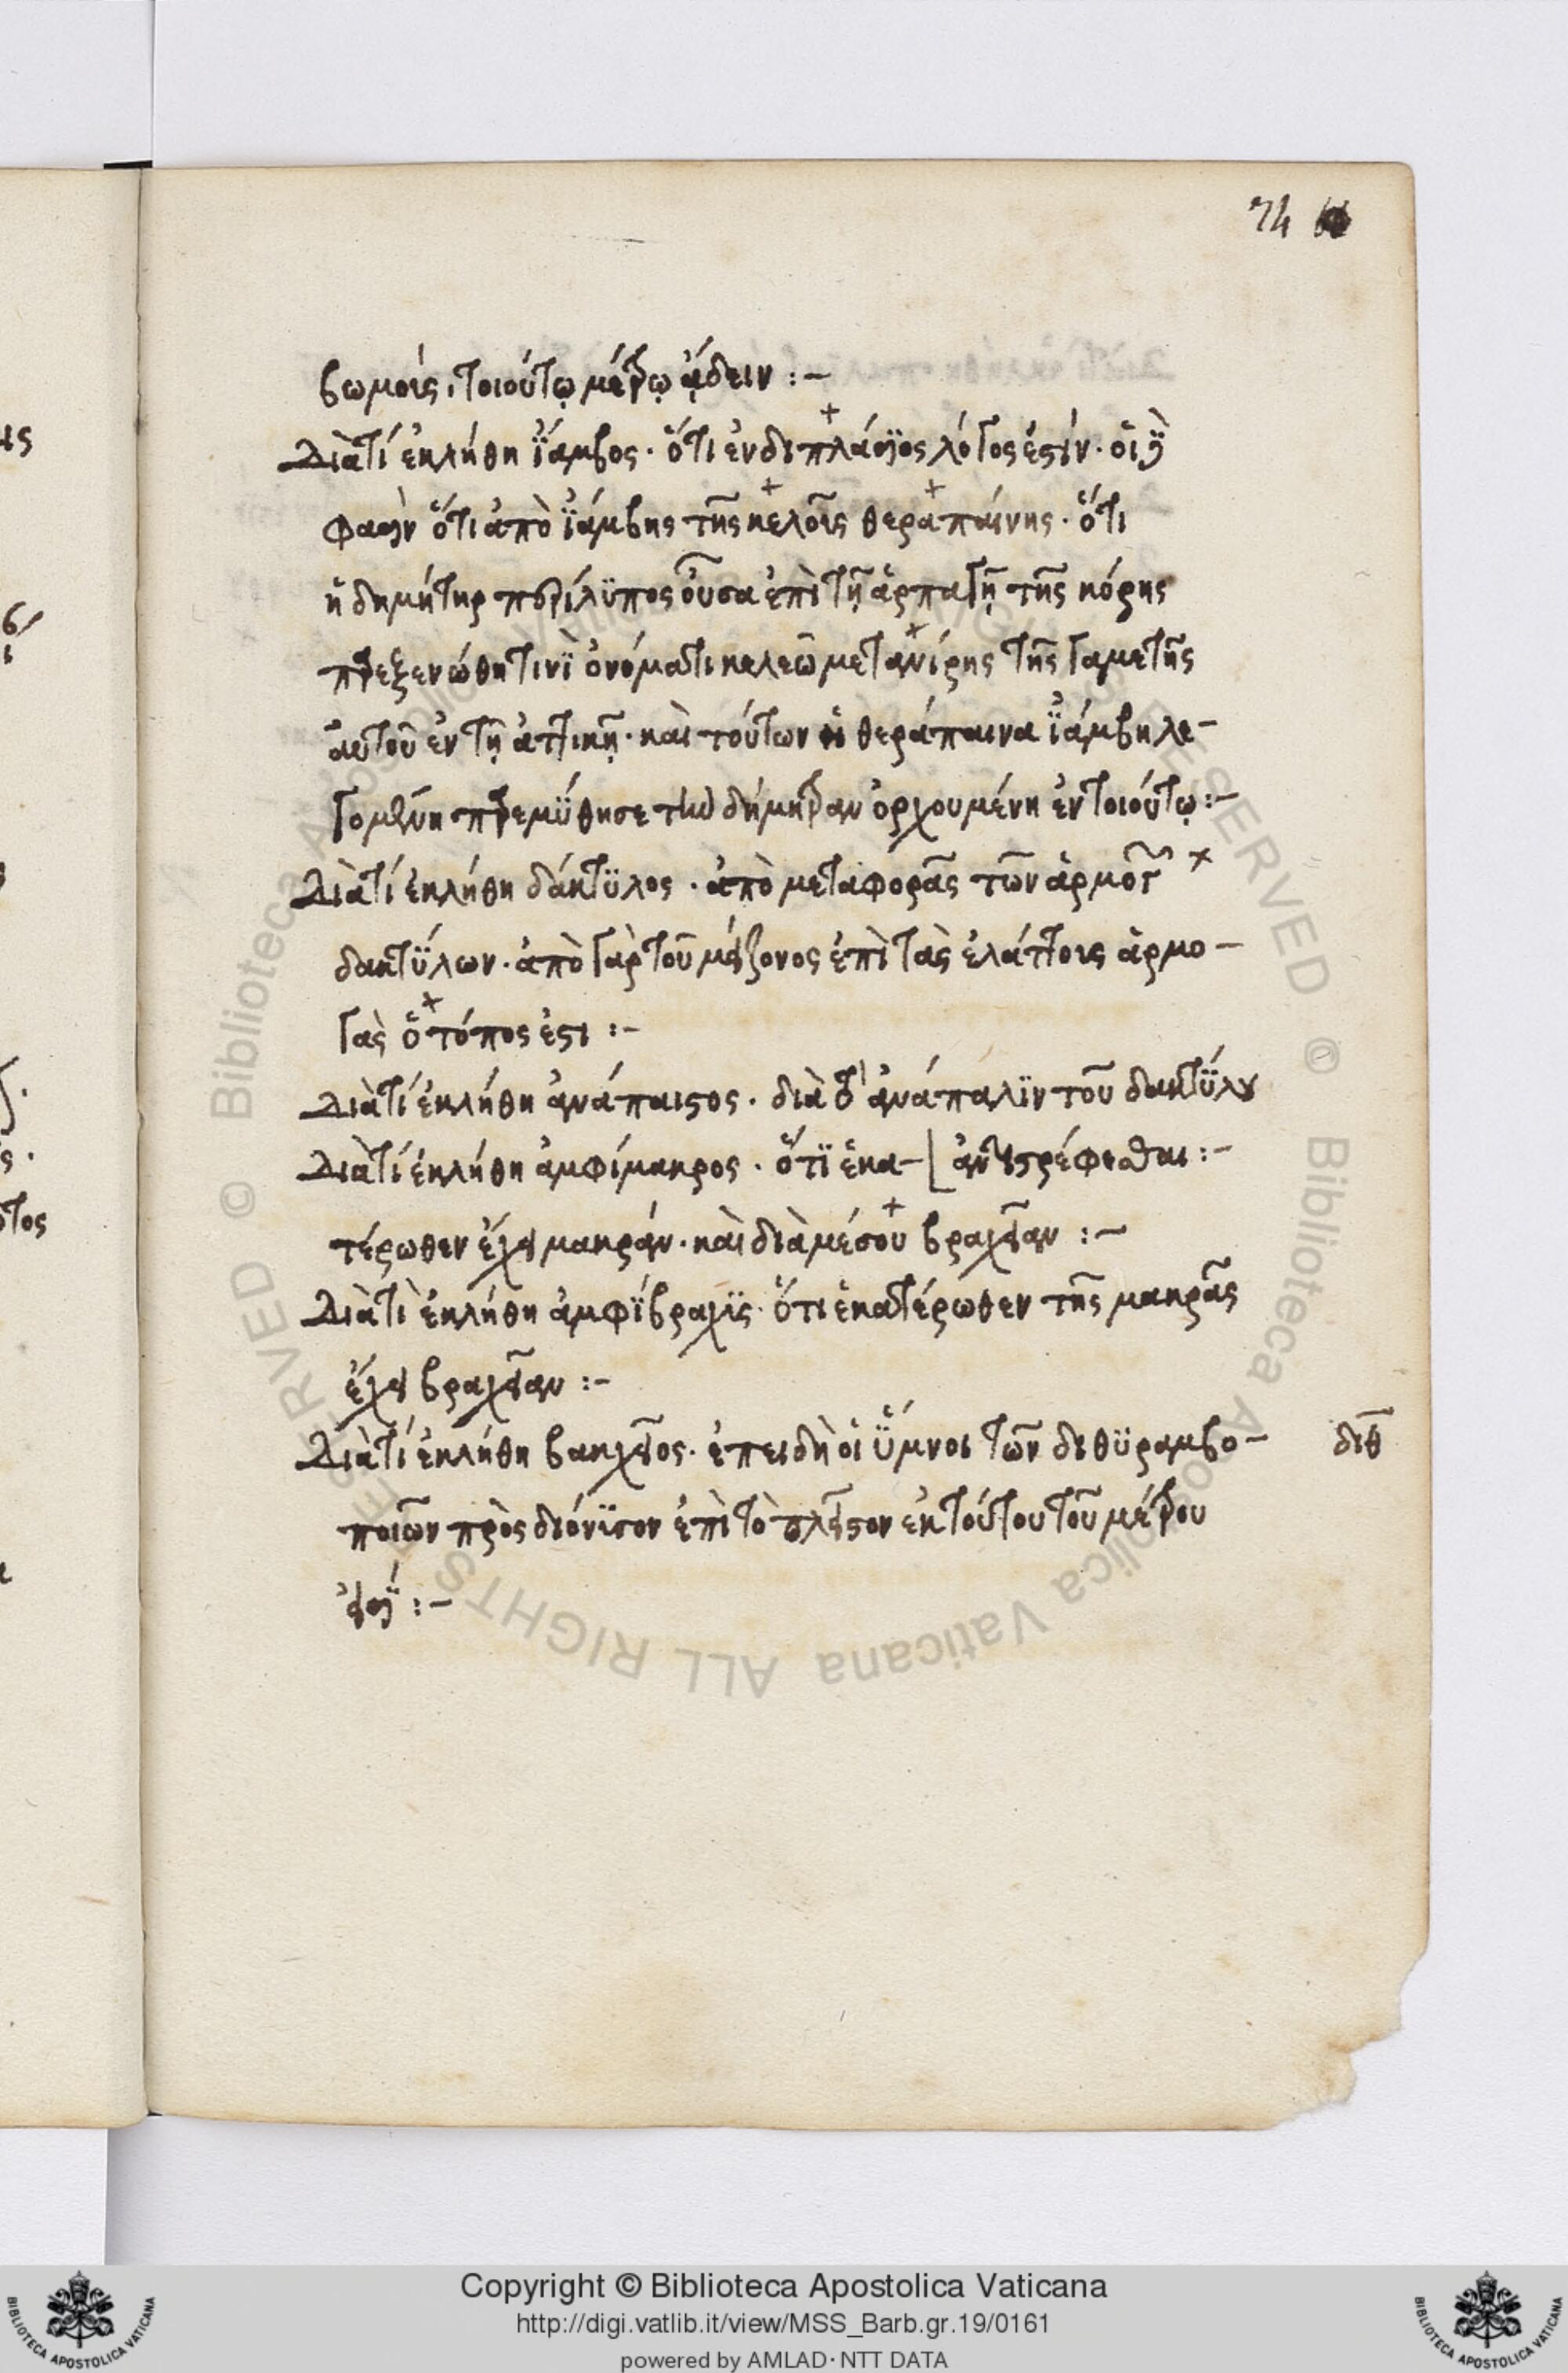 74
βωμοῖς, τοιούτῳ μέτρῳ ᾄδειν :-
Διὰτί ἐκλήθη ἴαμβος · ὅτι ἐν διπλάσϊος λόγος ἐστίν · οἱ δὲ
φασὶν ὅτι ἀπὸ ἰάμβης τῆς κελοῖς θεραπαίνης · ὅτι
ἡ δημήτηρ περίλϋπος οὖσα ἐπὶ τῇ ἁρπαγῇ τῆς κόρης
παρεξενώθη τινῒ ὀνόματι κελεῶ μετανίρης τῆς γαμετῆς
αὐτοῦ ἐν τῇ ἀττικῇ · καὶ τούτων ἡ θεράπαινα ἰάμβη λε-
γομένη παρεμϋθησε τὴν δήμητραν ὀρχουμένη ἐν τοιούτῳ :-
Διὰτί ἐκλήθη δάκτϋλος · ἀπὸ μεταφορᾶς τῶν ἁρμογ
δακτΰλων · ἀπὸ γὰρ τοῦ μείζονος ἐπὶ τὰς ἐλάττοις ἁρμο-
γὰς ὁ τόπος ἐστι :-
Διὰτί ἐκλήθη ἀνάπαιστος · διὰ τὸ ἀνάπαλϊν τοῦ δακτΰλου
Διὰτί ἐκλήθη ἀμφίμακρος · ὅτϊ ἑκα- ἀντιστρέφεσθαι :-
τέρωθεν ἔχει μακράν · καὶ διὰ μέσου βραχεῖαν :-
Διὰτὶ ἐκλήθη ἀμφΐβραχϊς · ὅτι ἑκατέρωθεν τῆς μακρᾶς
ἔχει βραχεῖαν :-
Διὰτί ἐκλήθη βακχεῖος · ἐπειδὴ οἱ ὕμνοι τῶν διθϋραμβο-
διθ
ποιῶν πρὸς διόνϊσον ἐπὶ τὸ πλεῖστον ἐκ τούτου τοῦ μέτρου
εἰσΐ :-
Copyright © Biblioteca Apostolica Vaticana
http://digi.vatlib.it/view/MSS_Barb.gr.19/0161
powered by AMLAD · NTT DATA